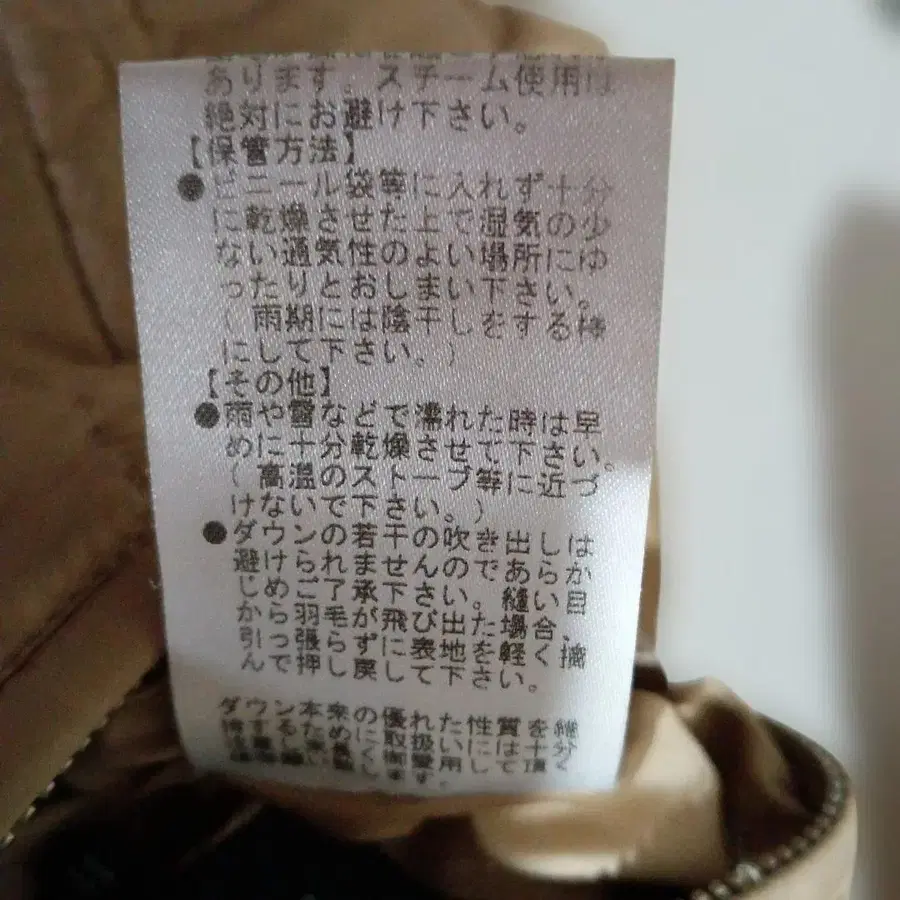 あります。スチーム使用は
絶対にお避け下さい。
【保管方法】
●ビニール袋等に入れず十分
に乾燥させた上で湿気の少
ない通気性のよい場所にゆ
ったりとおしまい下さい。
(雨期には陰干しをする様
にして下さい。)
【その他】
●雨や雪などで濡れた時は早
めに十分乾燥させて下さい。
(高温のストーブ等に近づ
けないで下さい。)
●ダウンの若干の吹き出しは
避けられませんのであらか
じめご了承下さい。縫い目
から羽毛が飛び出た場合、
引っ張らずに表地を軽く摘
んで押し戻して下さい。
ダウン本来の優れた性質を維